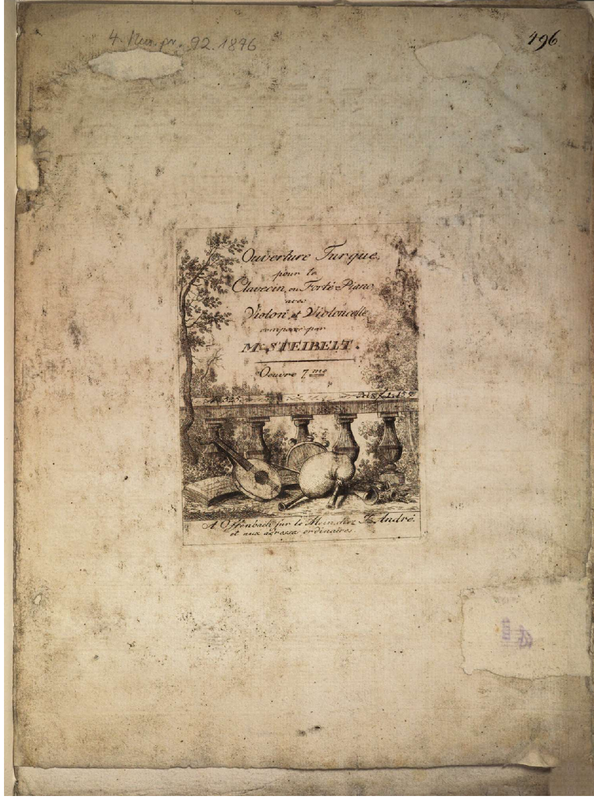 4. Nur. pr. 92. 1896
496
Ouverture Turque
pour le
Clavecin, ou Forté-Piano
avec
Violon et Violoncelle
composée par
Mr. STEIBELT.
Oeuvre 7me
A Offenbach sur le Mein chez J. André.
et aux adresses ordinaires